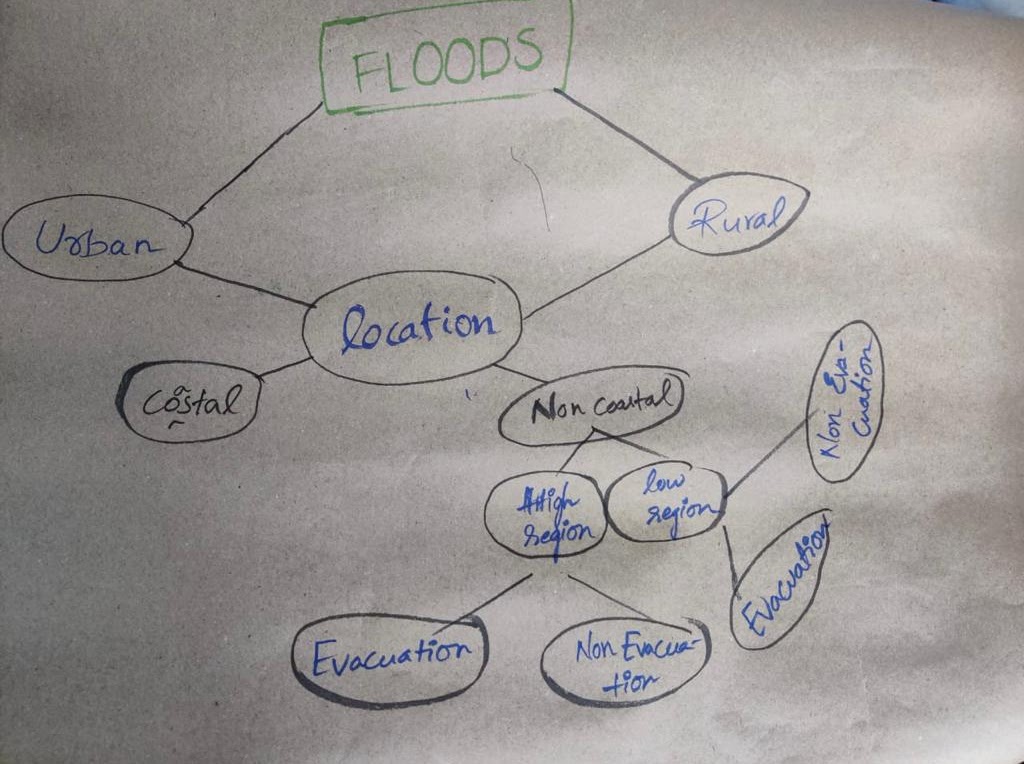 FLOODS
Urban
Rural
location
Costal
Non coastal
High
region
low
region
Non Eva-
cuation
Evacuation
Evacuation
Non Evacua-
tion